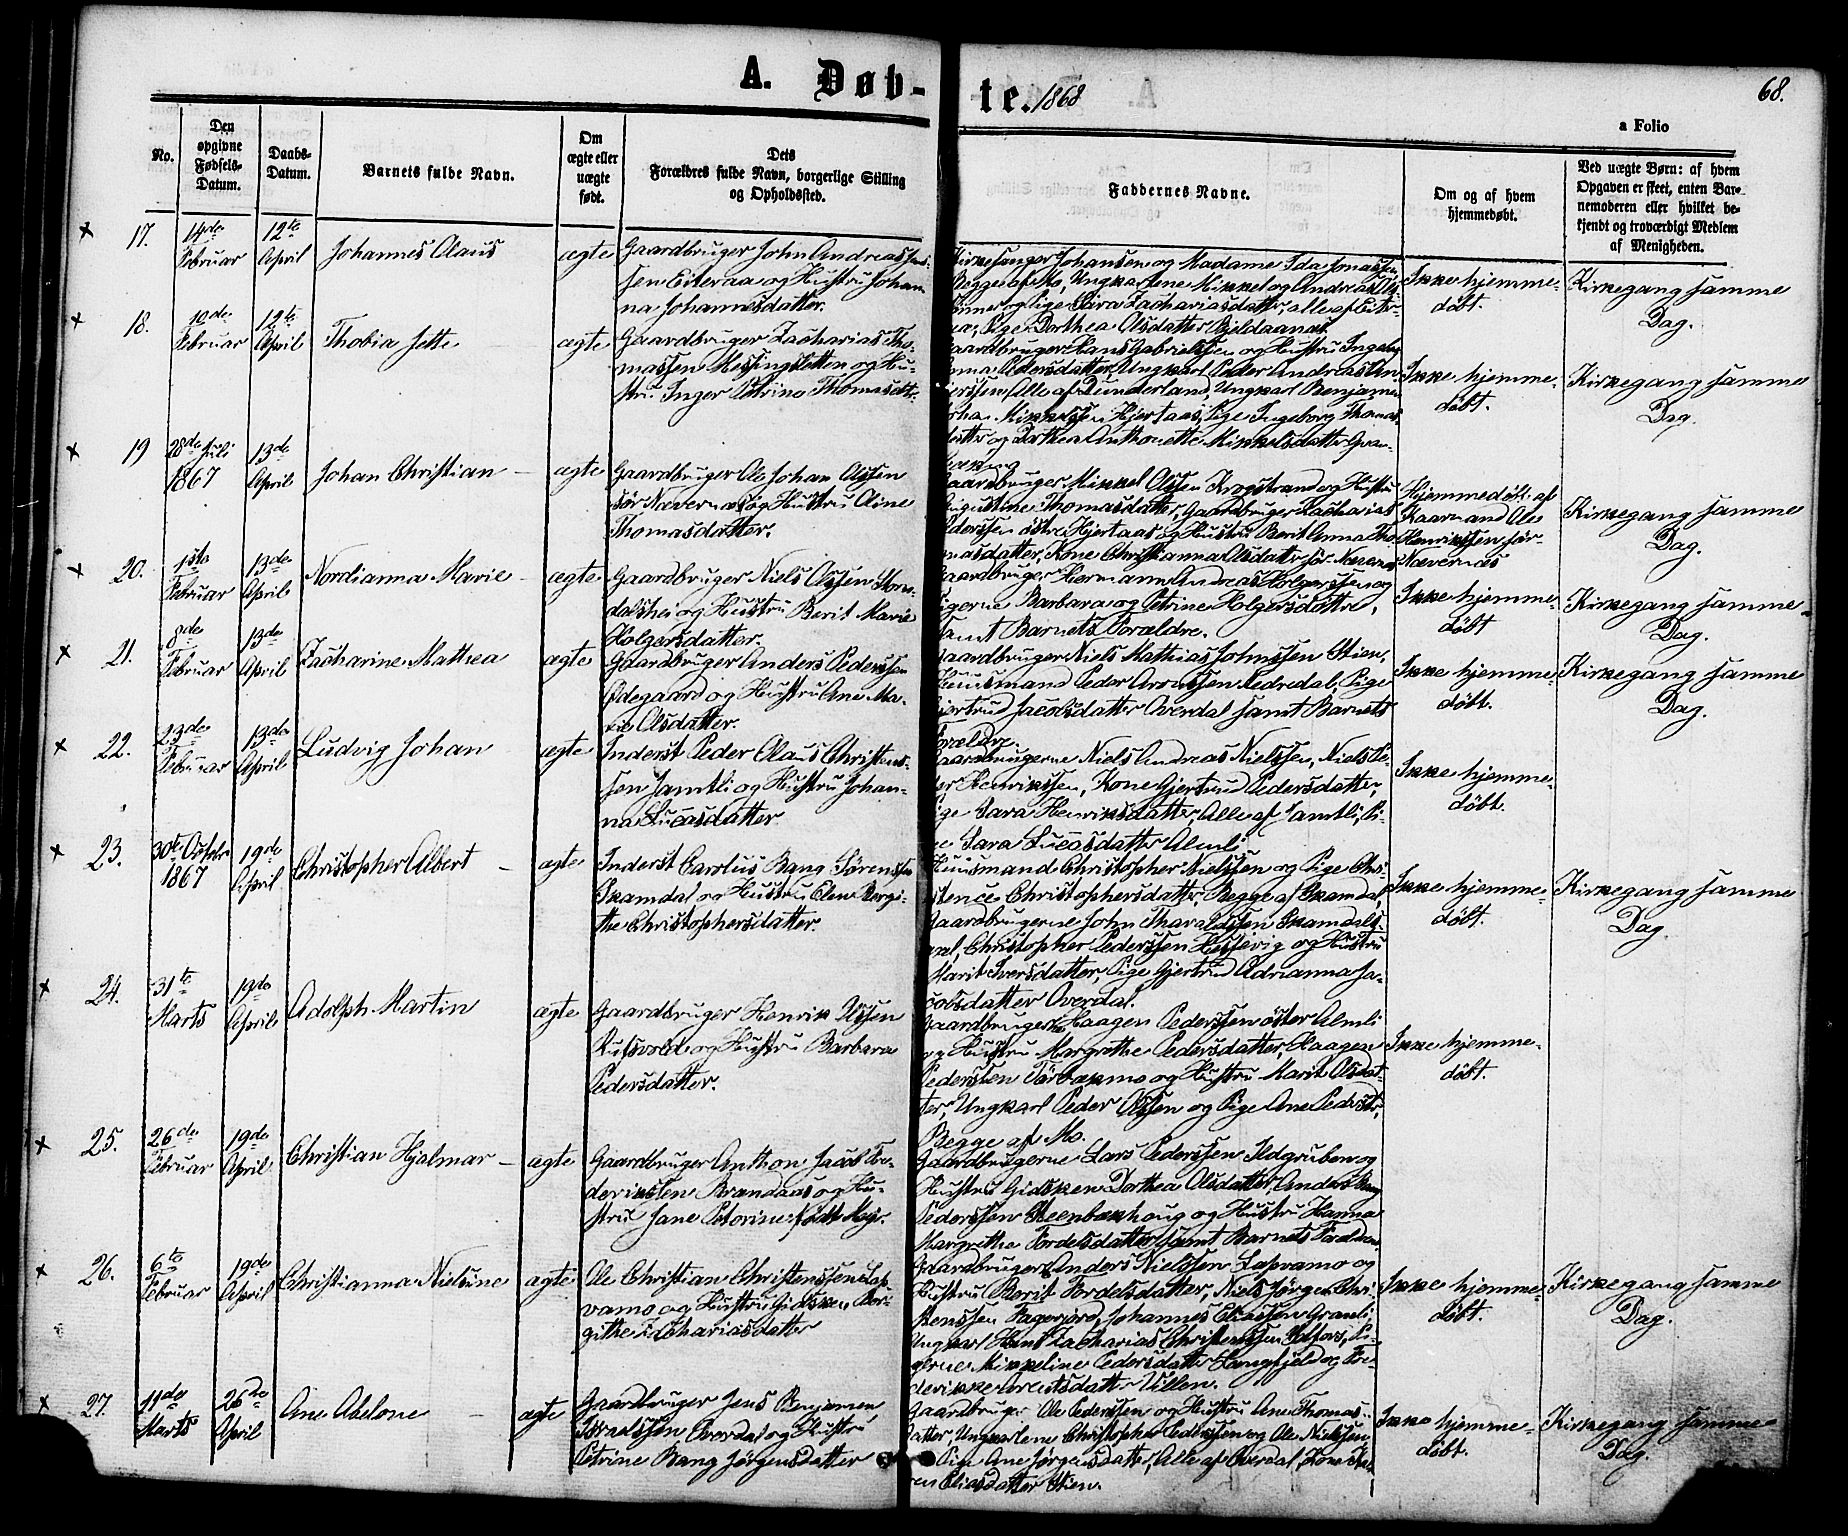 A. Døb-
te. 1868
68.
a Folio
No.
Den opgivne Fødsels-Datum.
Daabs-Datum.
Barnets fulde Navn.
Om ægte eller uægte født.
Dets Forældres fulde Navn, borgerlige Stilling og Opholdssted.
Faddernes Navne.
Om og af hvem hjemmedøbt.
Ved uægte Børn: af hvem Opgaven er skeet, enten Barnemoderen eller hvilket bekjendt og troværdigt Medlem af Menigheden.
17.
14de Februar
12te April
Johannes Olaus
ægte
Gaardbruger John Andreas
sen Eiteraa og Hustru Johan-
na Johannesdatter.
Kirkesanger Johansen og Madame Ida Jonassen
Begge af Mo, Ungkarlene Mikkel og Andreas
og Pige Sara Zachariasdatter, alle af
Pige Dorthea Olsdatter
Ikke hjemme-
døbt.
Kirkegang samme
Dag.
18.
10de Februar
12te April
Thobia Jette
ægte
Gaardbruger Zacharias Tho-
massen Messingsletten og Hu-
stru Inger Petrine Thomasdtr.
Gaardbruger Hans Gabrielssen og Hustru Ingebor
Anna Pedersdatter, Ungkarl Peder Andreas An-
derssen, Alle af Dunderland, Ungkarl Benjamin
Mikkelssen Hjertaas, Pige Ingeborg Thomas-
datter og Dorthea Anthonette Mikkelsdatter
Ikke hjemme-
døbt.
Kirkegang samme
Dag.
19
28de Juli
1867
13de
April
Johan Christian
ægte
Gaardbruger Ole Johan Olssen
Sør Nævernæs og Hustru Oline
Thomasdatter.
Gaardbruger Mikkel Olssen Krogstrand og Hustru
Augustine Thomasdatter, Gaardbruger Zacharias
Pederssen østre Hjertaas og Hustru Berit Anna Tho-
masdatter, Kone Christianna Olsdatter Sør Nævernæs
Hjemmedøbt af
Kaarmand Ole
Henrikssen Sør-
Nævernæs
Kirkegang samme
Dag.
20.
1ste
Februar
13de
April
Nordianna Marie
ægte
Gaardbruger Niels Olssen Stor-
dalshei og Hustru Berit Marie
Holgersdatter.
Gaardbruger Hermann Andreas Holgerssen og
Pigerne Barbara og Petrine Holgersdattre,
samt Barnets Forældre.
Ikke hjemme-
døbt
Kirkegang samme
Dag.
21.
8de
Februar
13de
April
Zacharine Mathea
ægte
Gaardbruger Anders Pederssen
Ødegaard og Hustru Ane Ma-
rie Olsdatter.
Gaardbruger Niels Mathias Johnssen Stien,
Huusmand Peder Aronssen Redredal, Pige
Gjertrud Jacobsdatter Overdal samt Barnets
Forældre.
Ikke hjemme-
døbt.
Kirkegang samme
Dag.
22.
23de
Februar
13de
April
Ludvig Johan
ægte
Inderst Peder Olaus Christens-
sen Jamtli og Hustru Johan-
na Lucasdatter
Gaardbrugerne Niels Andreas Nielssen, Niels Pe-
der Henrikssen, Kone Gjertrud Pedersdatter,
Pige Sara Henriksdatter, Alle af Jamtli, Pi-
ge Sara Lucasdatter Almli
Ikke hjemme-
døbt.
23.
30te Octobr
1867
19de
April
Christopher Albert
ægte
Inderst Carolus Bang Sørenssen
Skamdal og Hustru Elen Bergi-
the Christophersdatter.
Huusmand Christopher Nielssen og Pige Chri-
stence Christophersdatter, Begge af Skamdal,
Gaardbrugerne John Tharaldssen Skamdals-
, Christopher Pederssen Hellervig og Hustru
Marit Iversdatter, Pige Gjertrud Adrianna Ja-
cobsdatter Overdal.
Ikke hjemme-
døbt.
Kirkegang samme
Dag.
24.
31te
Marts
19de
April
Adolph Martin
ægte
Gaardbruger Henrik Olssen
Rufsvold og Hustru Barbara
Pedersdatter.
Gaardbruger Haagen Pederssen øster Almli
og Hustru Margrethe Pedersdatter, Haagen
Pederssen Tørbækmo og Hustru Marit Olsdat-
ter, Ungkarl Peder Olssen og Pige Ane Pedersdtr,
Begge af Mo.
Ikke hjemme-
døbt.
25.
26de
Februar
19de
April
Christian Hjalmar
ægte
Gaardbruger Anthon Jacob Fre-
derikssen Brandaas og Hu-
stru Jane Petorine født Mejer.
Gaardbrugerne Lars Pederssen Ildgruben og
Hustru Gidsken Dorthea Olsdatter, Anders Bang
Pederssen Steenbækhoug og Hustru Hanna
Margrethe Fordelsdatter samt Barnets Forældre.
26.
6te
Februar
19de
April
Christianna Nielsine
ægte
Ole Christian Christenssen Lap-
vamo og Hustru Gidsken Ber-
githe Zachariasdatter
Gaardbruger Anders Nielssen Lapvamo og
Hustru Berit Fordelsdatter, Niels Jørgen Chri-
stenssen Fagerjord, Johannes Eliassen Granli
Ungkarl Hans Zacharias Christenssen, Pi-
gerne Mikkeline Pedersdatter Langfjeld og Fre-
derikke Arentsdatter Villen.
Ikke hjemme-
døbt.
Kirkegang samme
Dag.
27.
11de
Marts
26de
April
Ane Abelone
ægte
Gaardbruger Jens Benjamin
Overdal og Hustru
Petrine Bang Jørgensdatter
Gaardbruger Ole Pederssen og Hustru Ane Thomas-
datter, Ungkarlene Christopher Pederssen og Ole Nielssen,
Pige Ane Jørgensdatter, Alle af Overdal, Kone
Eliasdatter Stien.
Ikke hjemme-
døbt.
Kirkegang samme
Dag.